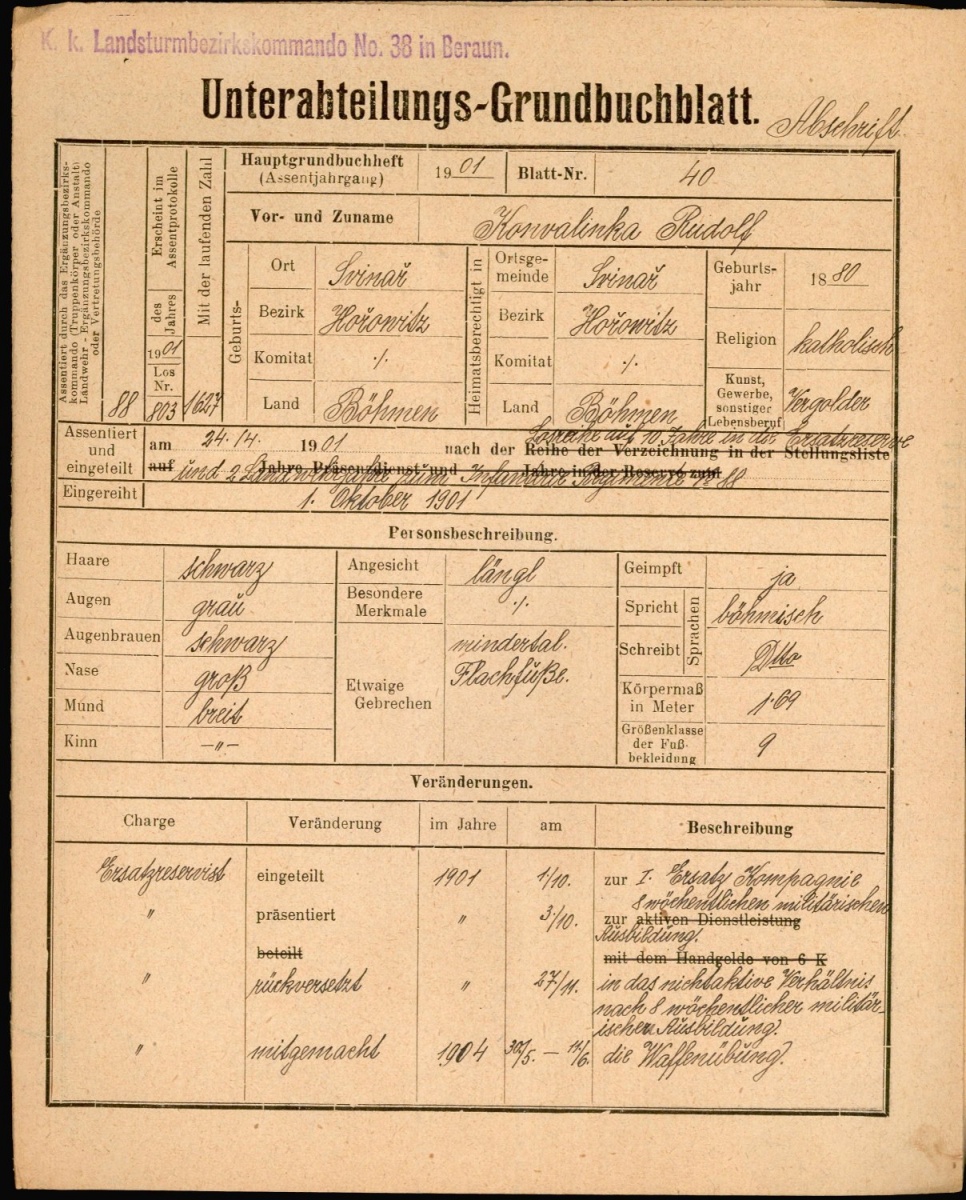 K. k. Landsturmbezirkskommando No. 38 in Beraun.
Unterabteilungs-Grundbuchblatt.
Abschrift
Assentiert durch das Ergänzungsbezirks-
kommando (Truppenkörper oder Anstalt)
Landwehr-Ergänzungsbezirkskommando
oder Vertretungsbehörde
88
Erscheint im
Assentprotokolle
des
Jahres
1901
Los
Nr.
803
Mit der laufenden Zahl
1627
Hauptgrundbuchheft
(Assentjahrgang)
1901
Blatt-Nr.
40
Vor- und Zuname
Konvalinka Rudolf
Geburts-
Ort
Svinař
Bezirk
Hořowitz
Komitat
·/·
Land
Böhmen
Heimatsberechtigt in
Ortsge-
meinde
Svinař
Bezirk
Hořowitz
Komitat
·/·
Land
Böhmen
Geburts-
jahr
1880
Religion
katholisch
Kunst,
Gewerbe,
sonstiger
Lebensberuf
Vergolder
Assentiert
und
eingeteilt
am 24./4. 1901 nach der Reihe der Verzeichnung in der Stellungsliste
Losreihe auf 10 Jahre in die Ersatzreserve
auf Jahre Präsenzdienst und Jahre in der Reserve zum
und 2 Landwehrjahre zum Infanterie Regimente No 88
Eingereiht
1. Oktober 1901
Personsbeschreibung.
Haare schwarz
Augen grau
Augenbrauen schwarz
Nase groß
Mund breit
Kinn —„—
Angesicht längl
Besondere
Merkmale ·/·
Etwaige
Gebrechen
mindertal.
Flachfüße.
Geimpft ja
Spricht
Schreibt
Sprachen
böhmisch
Dtto
Körpermaß
in Meter
1·69
Größenklasse
der Fuß-
bekleidung
9
Veränderungen.
Charge Veränderung im Jahre am Beschreibung
Ersatzreservist eingeteilt 1901 1/10. zur I. Ersatz Kompagnie
8 wöchentlichen militärischen
„ präsentiert „ 3/10. zur aktiven Dienstleistung
Ausbildung.
beteilt mit dem Handgelde von 6 K
„ rückversetzt „ 27/11. in das nichtaktive Verhältnis
nach 8 wöchentlicher militär-
ischer Ausbildung.
„ mitgemacht 1904 30/5. — 11/6. die Waffenübung.